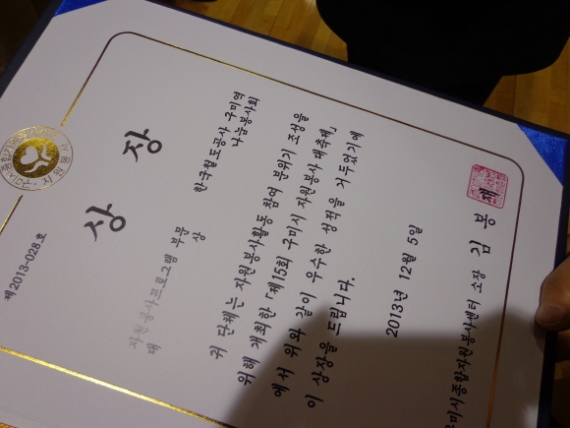 제2013-028호
상 장
자원봉사프로그램 부문
대 상
한국철도공사 구미역
나눔봉사회
귀 단체는 자원봉사활동 참여 분위기 조성을
위해 개최한 「제15회 구미시 자원봉사 대축제」
에서 위와 같이 우수한 성적을 거두었기에
이 상장을 드립니다.
2013년 12월 5일
구미시종합자원봉사센터 소장 김 봉 재